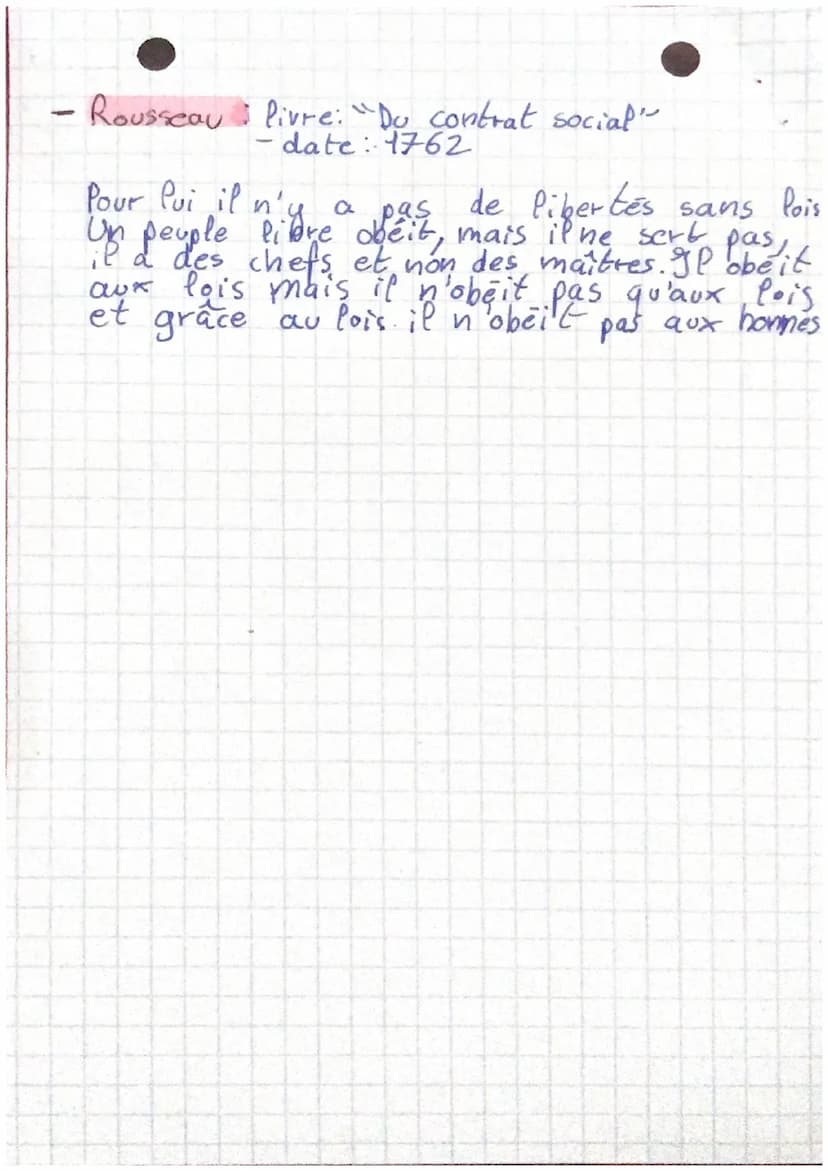 - Rousseau : livre: "Du contrat social"
- date : 1762
Pour lui il n'y a pas de libertés sans lois
Un peuple libre obéit, mais il ne sert pas,
il a des chefs et non des maîtres. Il obéit
aux lois mais il n'obéit pas qu'aux lois
et grâce au lois il n'obéit pas aux hommes